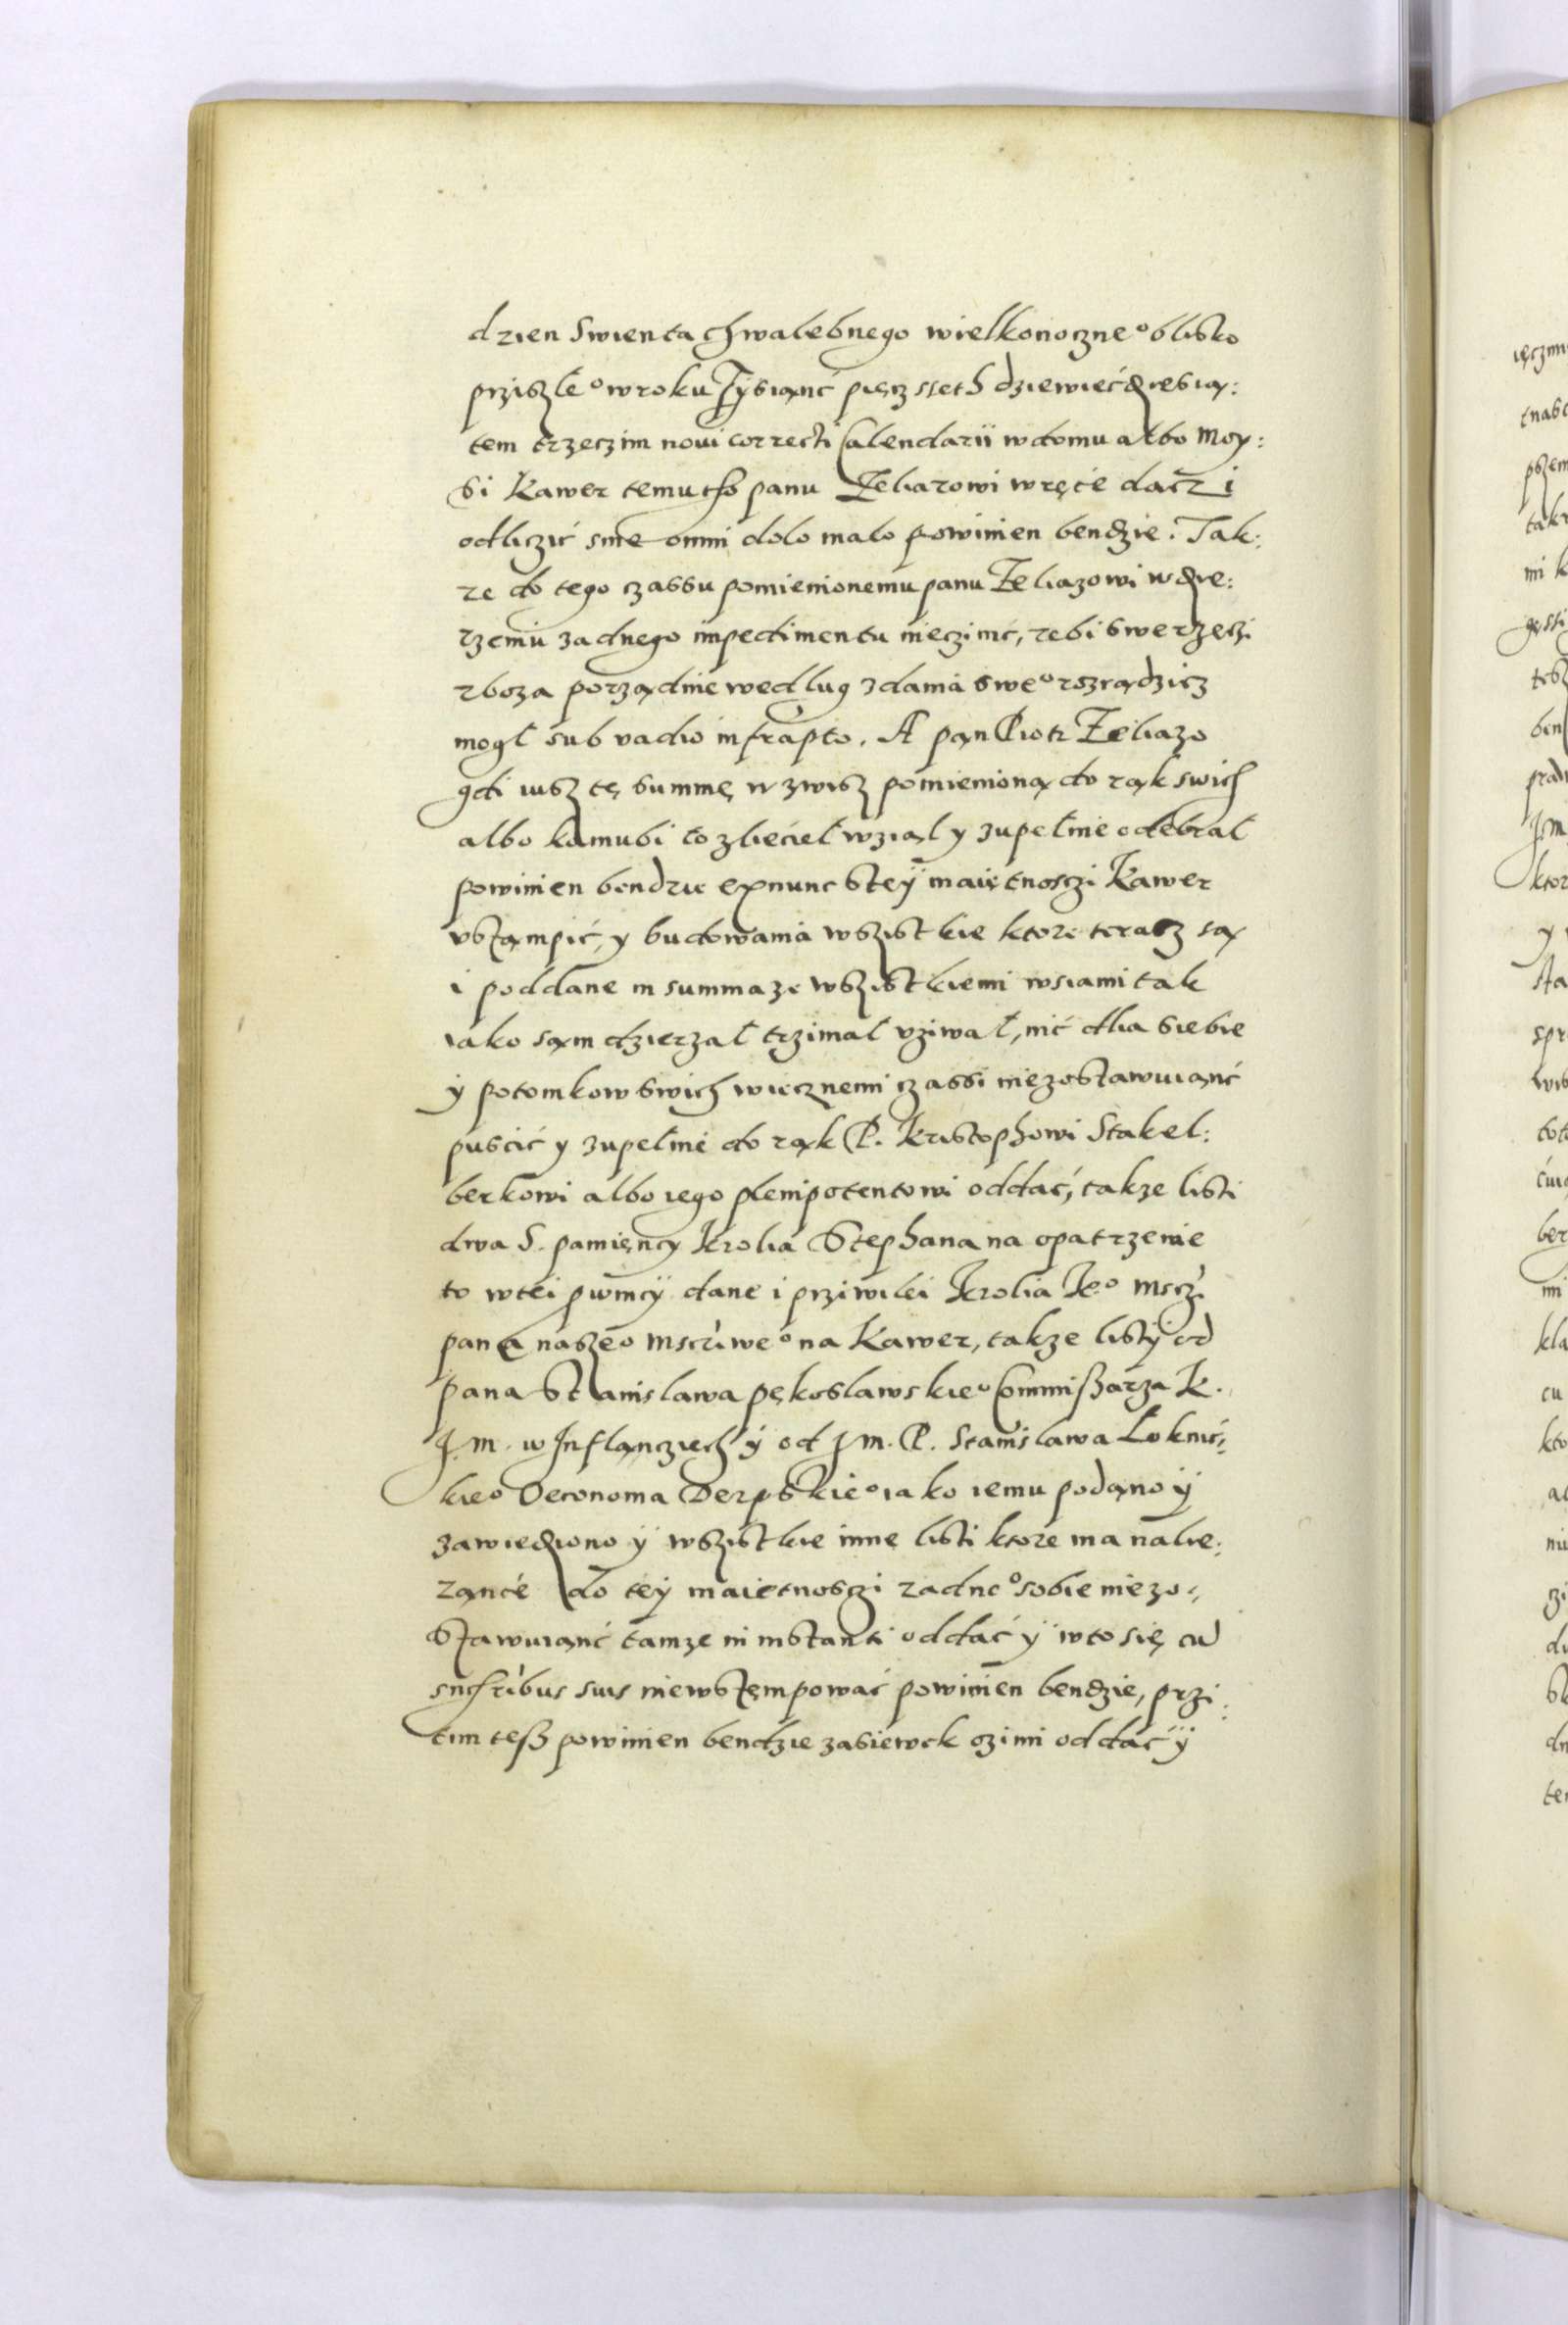 dzien Swienta chwalebnego wielkonoczne° blisko
prziszłe° w roku Tysiąnć pięcz sseth dziewiećdziesią:
tem trzeczim novi correcti Calendarii w domu albo Moy:
si Kawer temusz panu Żeliazowi w ręće dacz i
odliczić sine omni dolo malo powinien bendzie. Tak:
ze do tego czassu pomienionemu panu Żeliazowi w dzie:
rzeniu zadnego impedimentu nieczinić, zebi swe rzeczi
zboza porządnie wedlug zdania swe° rozrądzicz
mogł sub vadio infrapto. A pan Piotr Żeliazo
gdi iusz tę summę w zwisz pomienioną do rąk swich
albo kamusi to zliećieł wziąl y zupełnie odebrał
powinien bendzie ex nunc s teÿ maiętnosczi Kawer
ustąmpić, y budowania wszistkie ktore terasz są
i poddane in summa ze wszistkiemi wsiami tak
iako sąm dzierzał trzimał uziwał, nić dlia siebie
ÿ potomkow swich wiecznemi czassi niezostawuiąnć
puscić y zupełnie do rąk P. Kristophowi Stakel:
berkowi albo iego plenipotentowi oddać, takze listi
dwa S. pamięncy Krolia Stephana na opatrzenie
to w tei pwincÿ dane i priziwilei Krolia Je° msczi
pana nasze° msciwe° na Kawer, takze listÿ od
pana Stanislawa pękoslawskie° Commißarza K.
J. m. w Inflancziech ÿ od J m. P. Stanislawa Łoknić:
kie° Oeconoma Derpskie° iako iemu podąno ÿ
zawiedziono ÿ wszistkie inne listi ktore ma nalie:
ząnće do teÿ maietnosczi zadne° sobie niezo:
stawuiąnć tamze in instanti oddać ÿ w to się cu
sucsribus suis niewstęmpować powinien bendzie, przi:
tim teß powinien bendzie zasiewek ozimi oddać ÿ